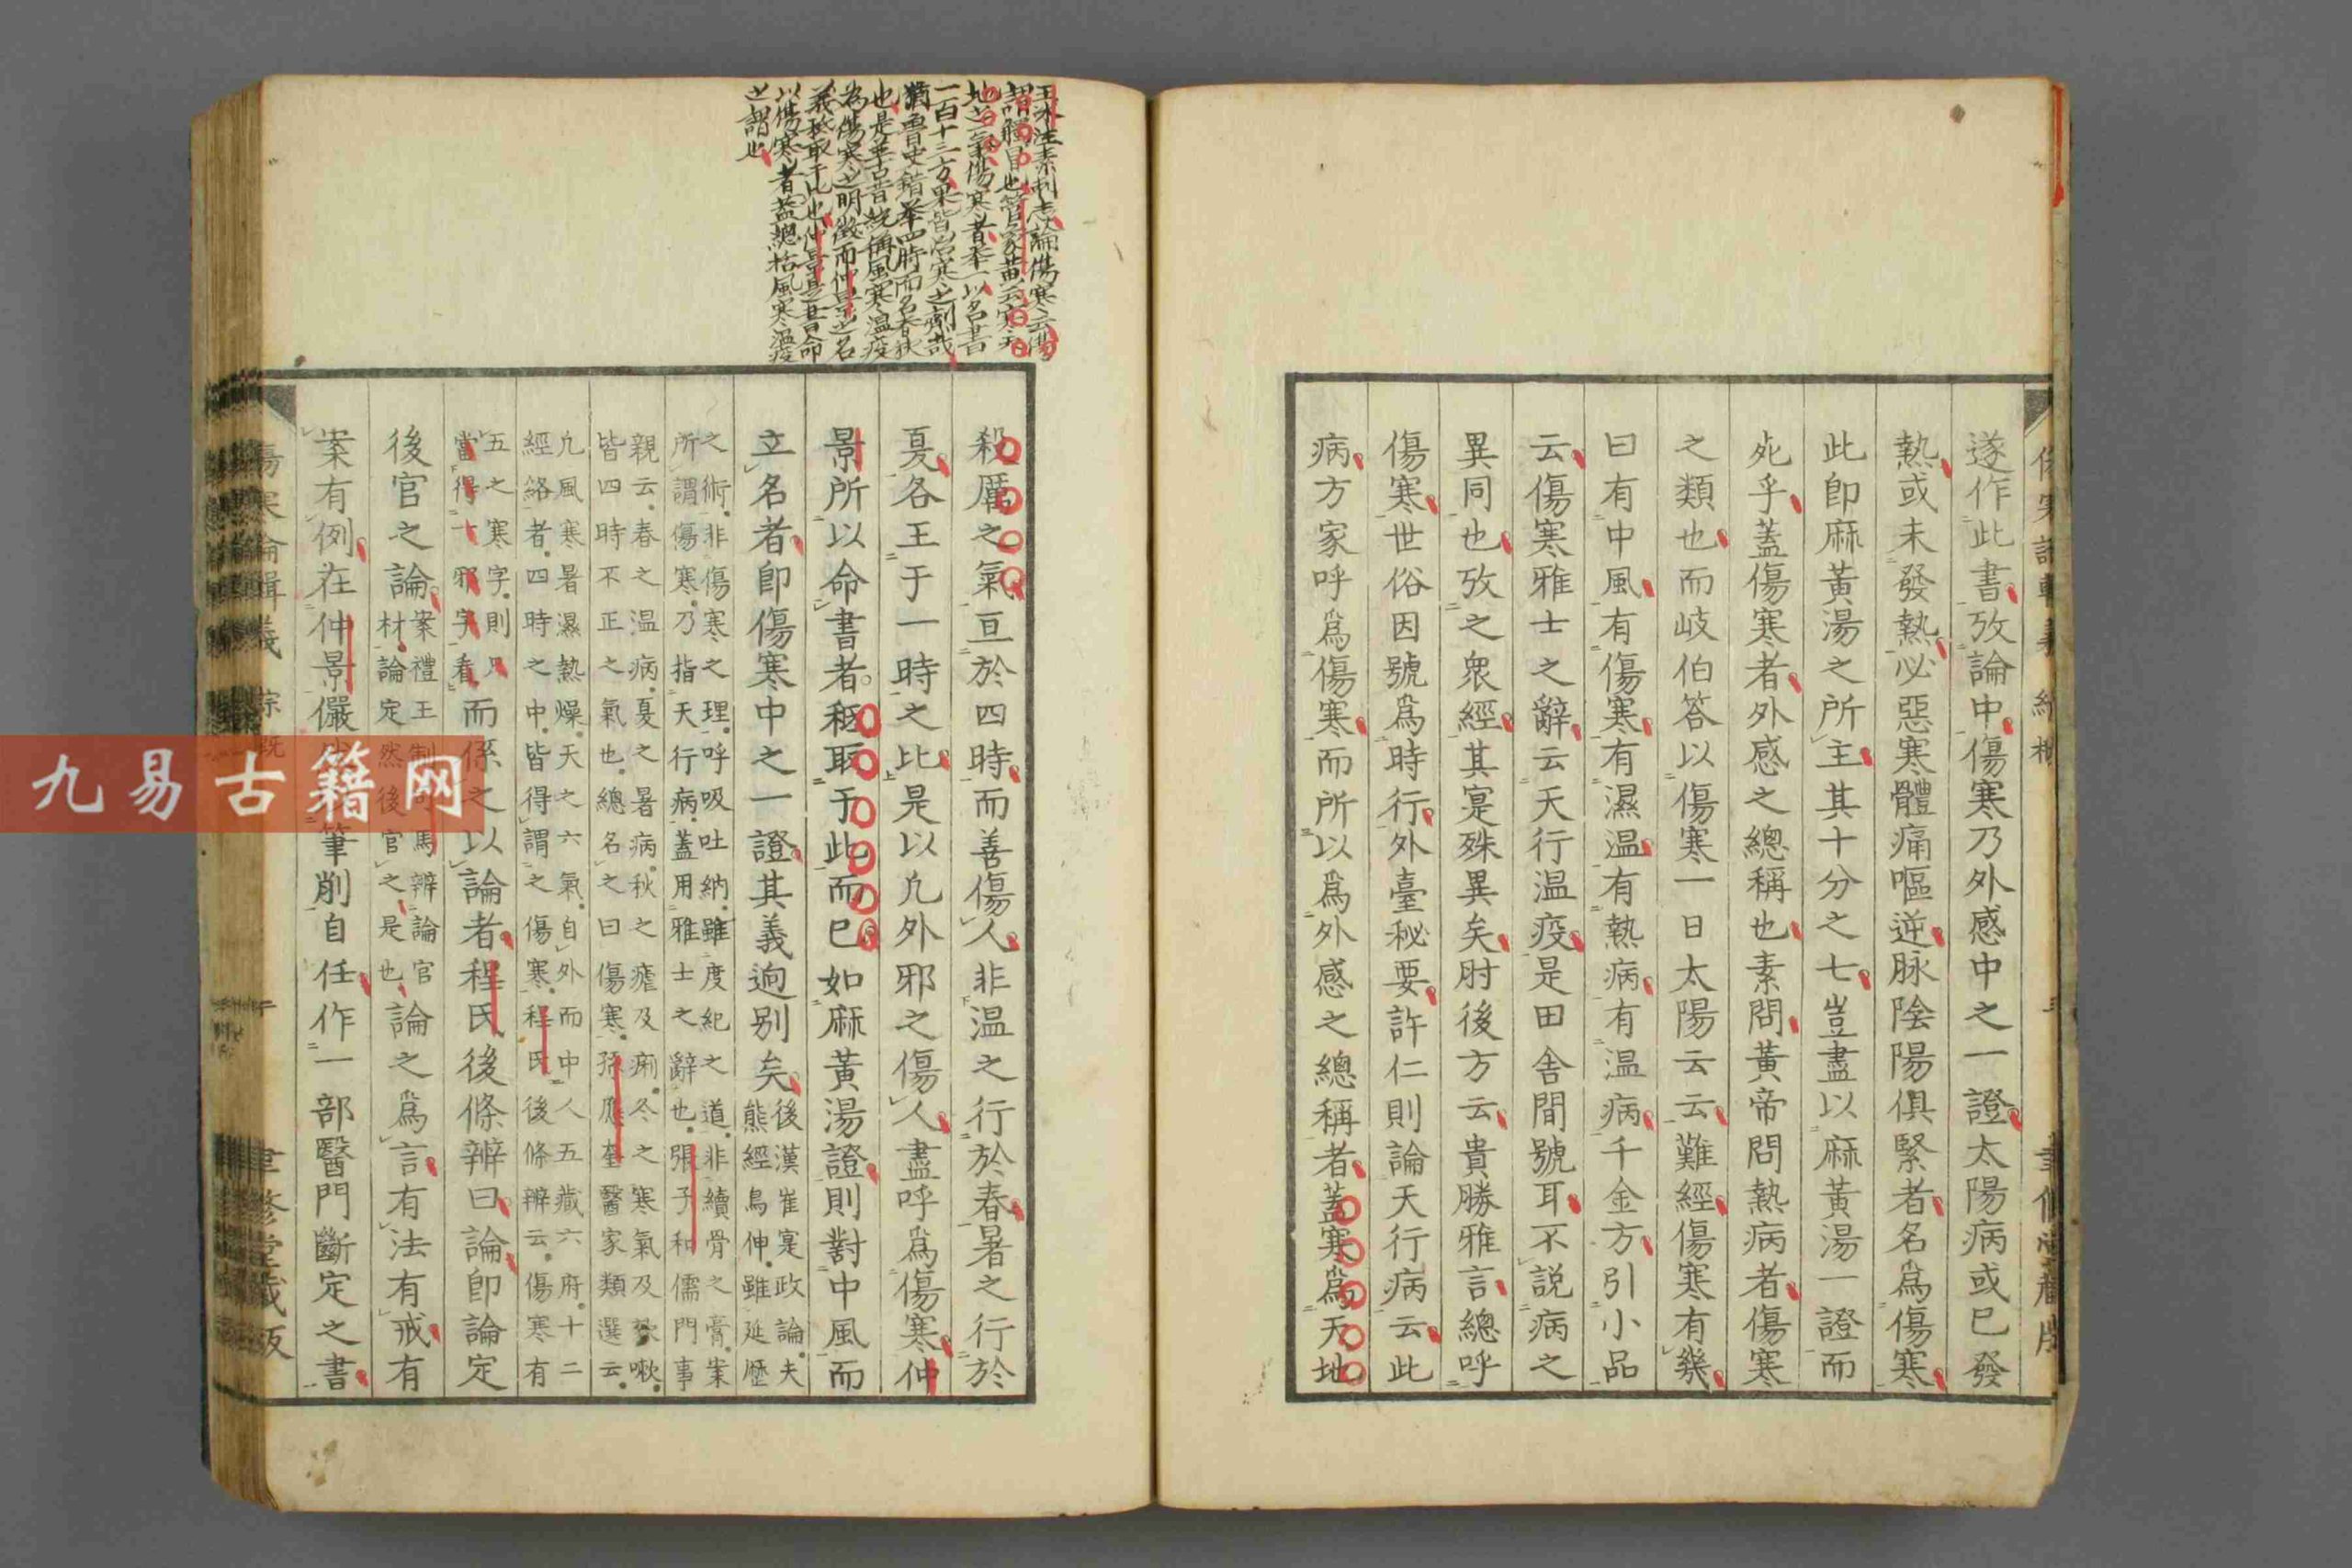 遂作此書攷論中傷寒乃外感中之一證太陽病或已發
熱或未發熱必惡寒體痛嘔逆脉陰陽俱緊者名爲傷寒
此卽麻黃湯之所主其十分之七豈盡以麻黃湯一證而
死乎蓋傷寒者外感之總稱也素問黃帝問熱病者傷寒
之類也而岐伯答以傷寒一日太陽云云難經傷寒有幾
曰有中風有傷寒有濕温有熱病有温病千金方引小品
云傷寒雅士之辭云天行温疫是田舍間號耳不說病之
異同也攷之眾經其寔殊異矣肘後方云貴勝雅言總呼
傷寒世俗因號爲時行外臺秘要許仁則論天行病云此
病方家呼爲傷寒而所以爲外感之總稱者蓋寒爲天地
玉氷注素刺志論傷寒云傷
謂觸冒也管家黃云寒天
地之氣傷寒者奉一以名書
一百十三方果皆治寒之劑哉
猶魯史錯舉四時而名春秋
也是草古昔統稱風寒温疫
為傷寒之明徵而仲景之名
義秪取于此也仲景是書命
以傷寒者蓋總括風寒温疫
之謂也
殺厲之氣亘於四時而善傷人非温之行於春暑之行於
夏各王于一時之比是以凢外邪之傷人盡呼爲傷寒仲
景所以命書者秪取于此而已如麻黃湯證則對中風而
立名者卽傷寒中之一證其義迥別矣後漢崔寔政論夫
熊經鳥伸雖延歷
之術非傷寒之理呼吸吐納雖度紀之道非續骨之膏案
所謂傷寒乃指天行病蓋用雅士之辭也張子和儒門事
親云春之温病夏之暑病秋之瘧及痢冬之寒氣及欬嗽
皆四時不正之氣也總名之曰傷寒孫應奎醫家類選云
凢風寒暑濕熱燥天之六氣自外而中人五藏六府十二
經絡者四時之中皆得謂之傷寒程氏後條辨云傷寒有
五之寒字則只
當得一邪字看而係之以論者程氏後條辨曰論卽論定
後官之論案禮王制司馬辨論官
材論定然後官之是也論之爲言有法有戒有
案有例在仲景儼然筆削自任作一部醫門斷定之書
傷寒論輯義 綜概
聿修堂藏版
九易古籍网